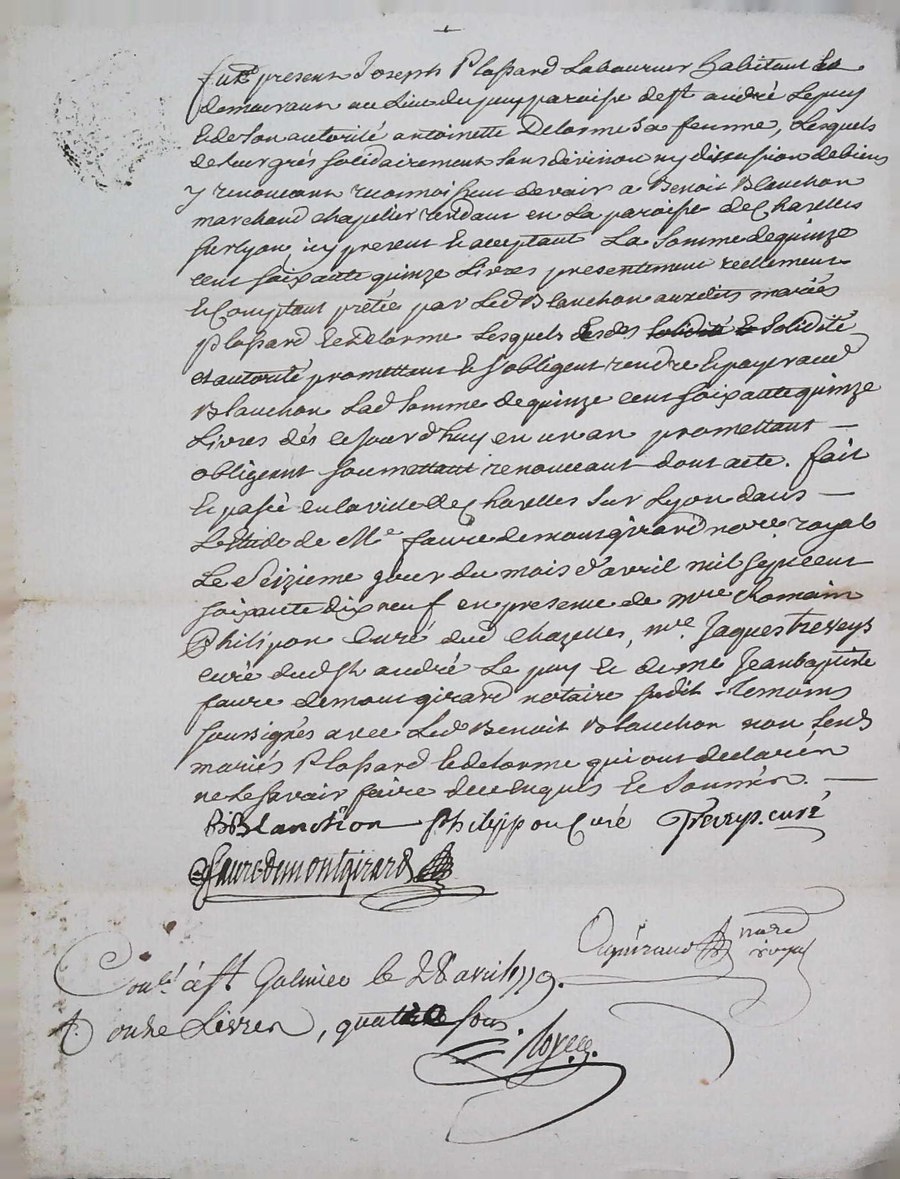 furent present Joseph Plassard Laboureur habitant et
demeurant au Lieu du puy paroisse de st andré Le puy
et de son autorité antoinette Delorme sa femme, Lesquels
de leur grés solidairement sans division ny discussion de biens
y renonceant reconnoissent devoir a Benoit Blanchon
marchand chapelier résidant en La paroisse de Chazelles
sur lyon icy present et acceptant La somme de quinze
cent soixante quinze Livres presentement réellement
et Comptant prétée par Led Blanchon auxdits mariés
plassard et Delorme Lesquels solidité
et autorité promettent et s'obligent rendre et payer aud
Blanchon Lad somme de quinze cent soixante quinze
Livres dés ce Jourd'huy en un an promettant —
obligeant soumettant renonceant dont acte. fait
et passé en la ville de Chazelles sur Lyon dans —
L'étude de Me faure demontgirard nore royal
Le seizieme jour du mois d'avril mil sept cent
soixante dix neuf en presence de mre Romain
Philipon Curé dud Chazelles, mre Jaques treveys
curé dud st andré Le puy et de me Jean baptiste
faure demontgirard notaire susdit temoins
soussignés avec Led Benoit Blanchon non lesd
mariés Plassard et delorme qui ont declarén
ne le savoir faire de ce enquis et Sommén. —
B Blanchon Philippon Curé Treveys. curé
fauredemontgirard
nore
royal
Conlé à st Galmier le 28 avril 1779.
R. onze Livres, quatre sous.